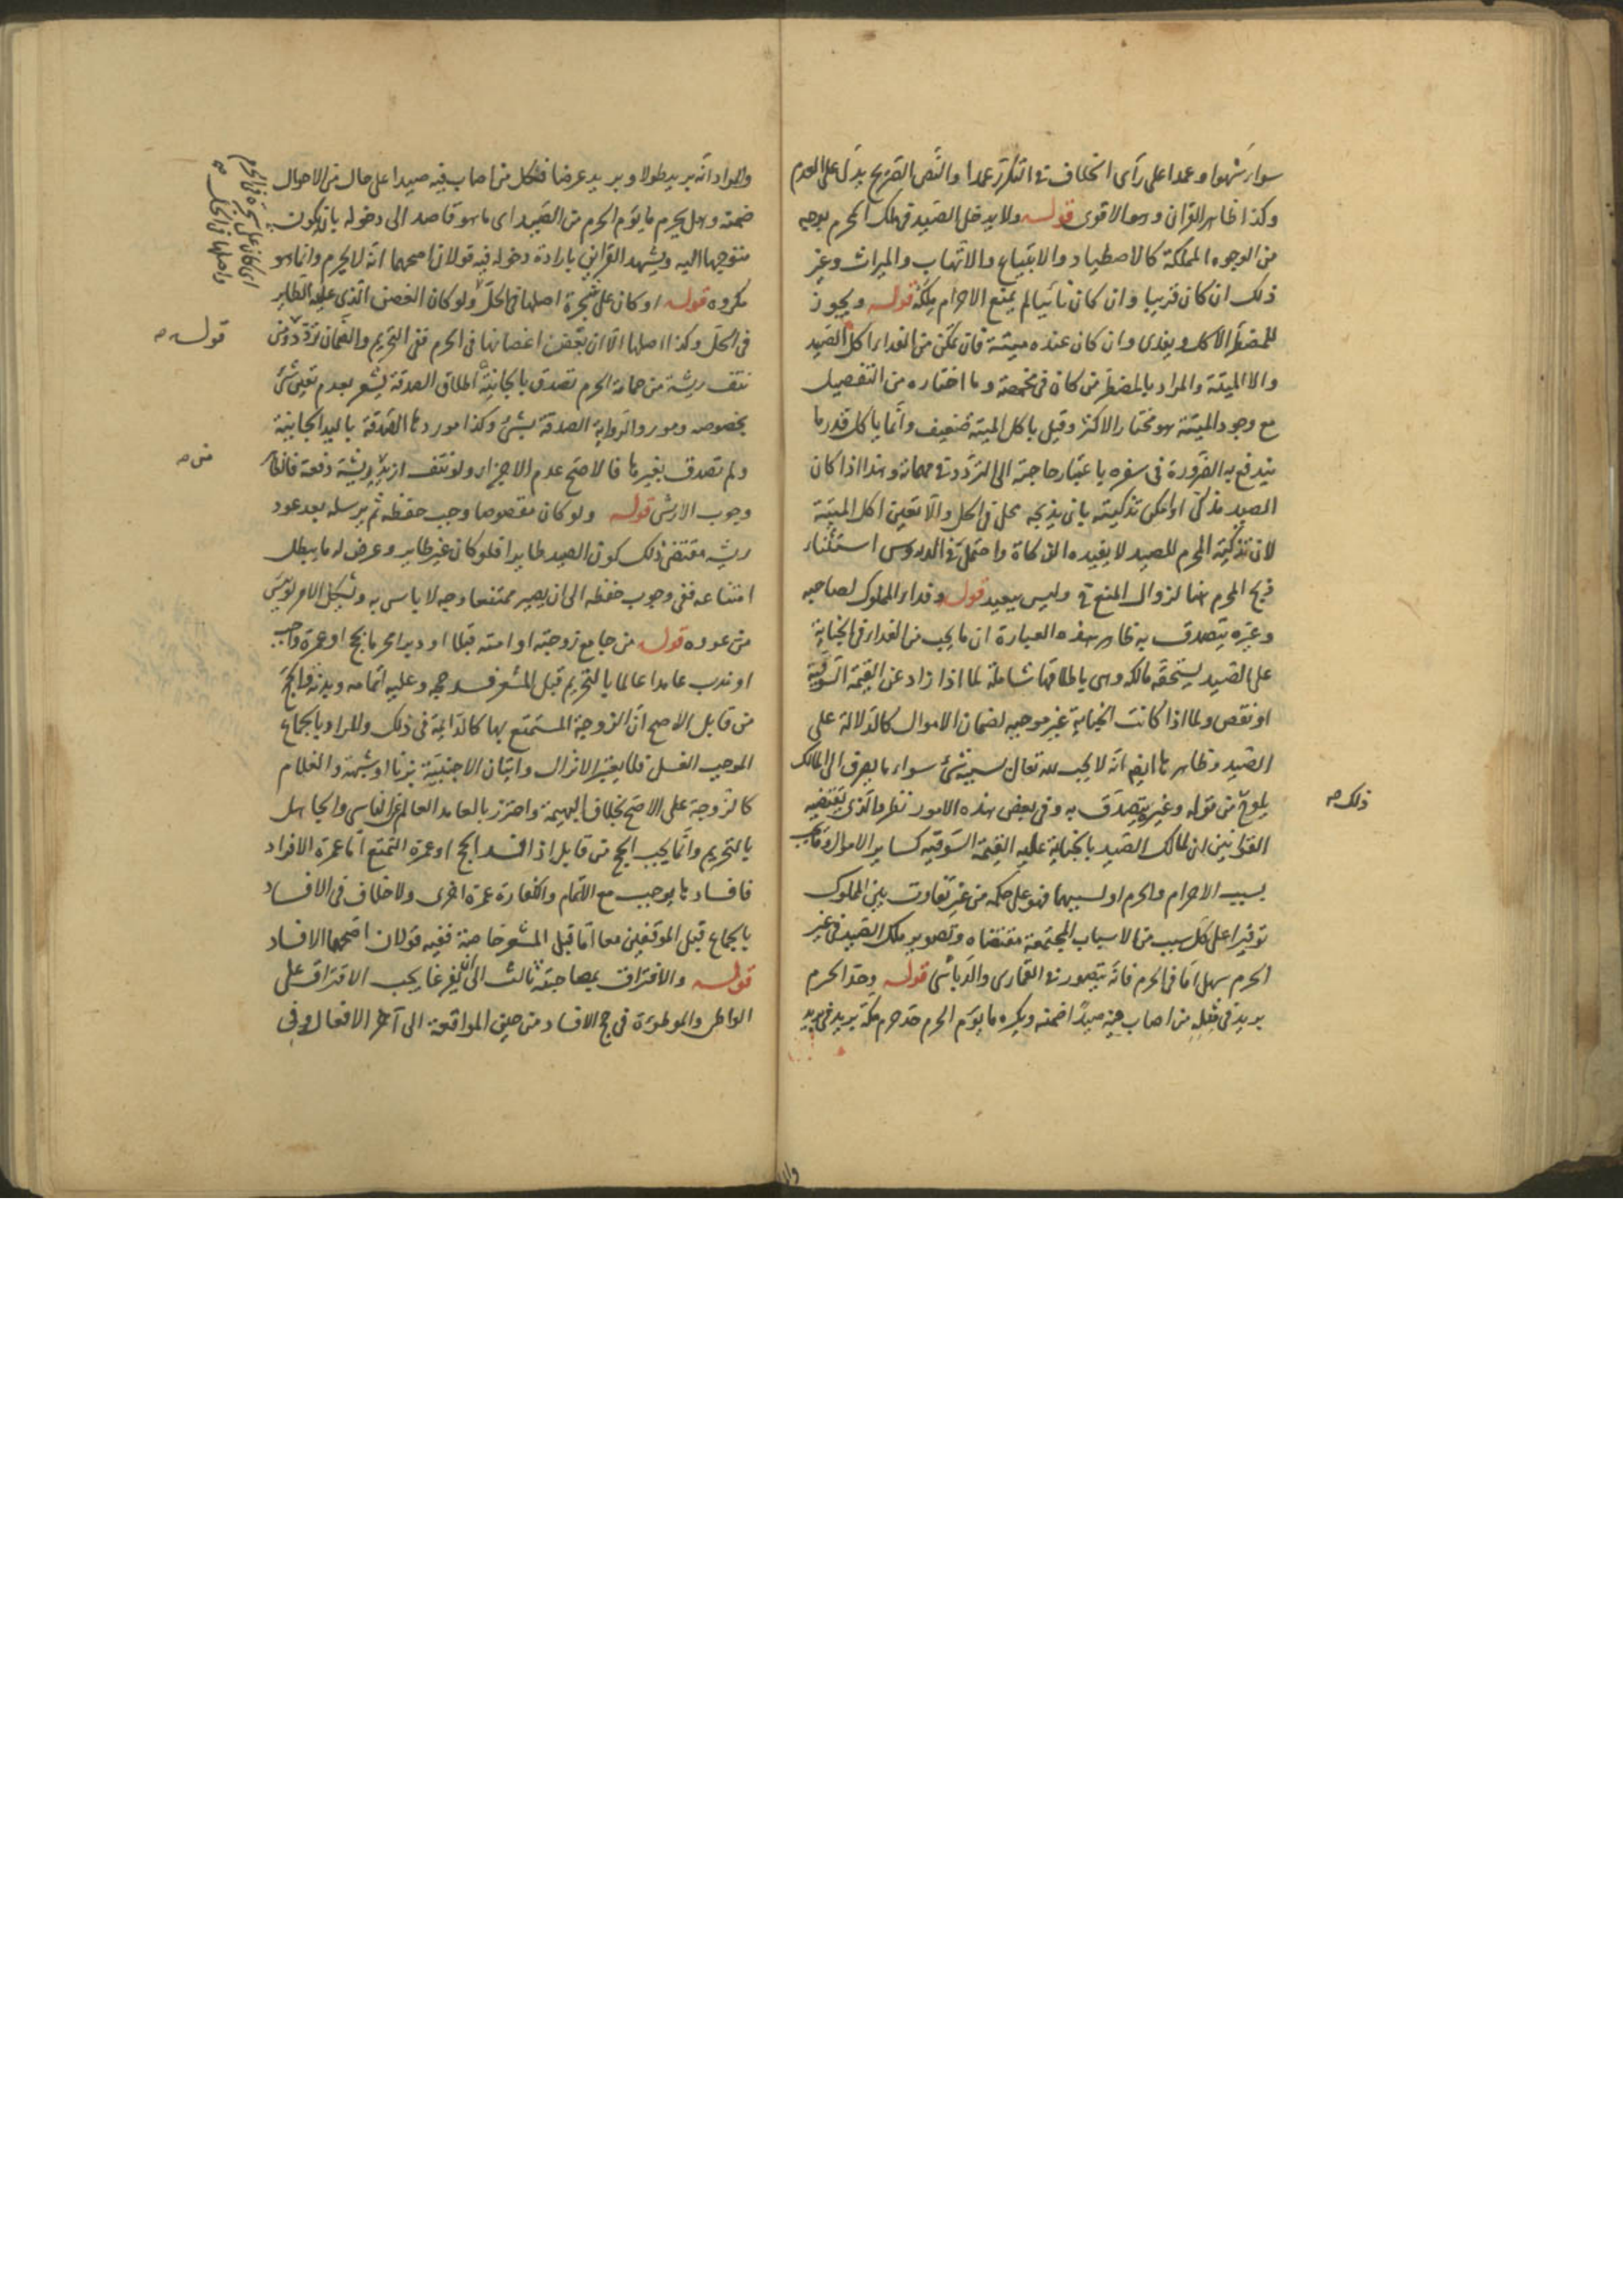 سواء سهوا وعمدا على رأى الخلاف فى التكرر عمدا والنص الصريح يدل على العدم
وكذا ظاهر القرآن وهو الاقوى قوله ولا يدخل الصيد فى ملك المحرم بوجه
من الوجوه المملكة كالاصطياد والابتياع والاتهاب والميراث وغير
ذلك ان كان قريبا وان كان نائيا لم يمنع الاحرام ملكه قوله ويجوز
للمضطر الاكل ويفدى وان كان عنده ميتة فان تمكن من الفداء اكل الصيد
والا الميتة والمراد بالمضطر من كان فى مخمصة وما اختاره من التفصيل
مع وجود الميتة هو مختار الاكثر وقيل ياكل الميتة ضعيف وانما ياكل قدر ما
يندفع به الضرورة فى سفره باعتبار حاجته الى التردد فى مهماته وهذا اذا كان
الصيد مذكى او امكن تذكيته بان يذبحه محل فى الحل والا تعين اكل الميتة
لان تذكية المحرم للصيد لا يفيده الذكاة واحتمل فى الدروس استثناء
ذبح المحرم هنا لزوال المنع فى وليس ببعيد قوله وفداء المملوك لصاحبه
وغيره يتصدق به ظاهر هذه العبارة ان ما يجب من الفداء فى الجناية
على الصيد يستحقه مالكه وهى باطلاقها شاملة لما اذا زاد عن القيمة السوقية
او نقص ولما اذا كانت الجناية غير موجبه لضمان الاموال كالدلالة على
الصيد وظاهرها ايضا انه لا يجب لله تعالى بسببه شئ سواء ما يصرف الى المالك
يلوح من قوله وغيره يتصدق به وفى بعض هذه الامور نظر والذى يقتضيه
القوانين ان لمالك الصيد بالجناية عليه القيمة السوقيه كساير الاموال وما يجب
بسبب الاحرام والحرم او بسببهما فهو على حكمه من غير تفاوت بين المملوك
توفيرا على كل سبب من الاسباب المجتمعة مقتضاه وتصوير ملك الصيد فى غير
الحرم سهل اما فى الحرم فانه يتصور فى القمارى والدباسى قوله وحد الحرم
بريد فى مثله من اصاب فيه صيدا ضمنه ويكره ما يؤم الحرم حد حرم مكة بريد فى بريد
ذلك صح
والمراد انه بريد طولا وبريد عرضا فكل من اصاب فيه صيدا على حال من الاحوال
ضمنه وهل يحرم ما يؤم الحرم من الصيد اى ما هو قاصد الى دخوله بان يكون
متوجها اليه ويشهد القراين بارادة دخوله فيه قولان اصحهما انه لا يحرم وانما هو
مكروه قوله او كان على شجرة اصلها فى الحل ولو كان الغصن الذى عليه الطاير
فى الحل وكذا اصلها الا ان بعض اغصانها فى الحرم ففى التحريم والضمان تردد ومن
نتف ريشة من حمامة الحرم تصدق بالجانية اطلاق الصدقة يشعر بعدم تعين شئ
بخصوصه ومورد الرواية الصدقة بشئ وكذا موردها الصدقة باليد الجانية
ولم تصدق بغيرها فالاصح عدم الاجزاء ولو نتف ازيد من ريشة دفعة فالظاهر
وجوب الارش قوله ولو كان مقصوصا وجب حفظه ثم يرسله بعد عود
ريشه مقتضى ذلك كون الصيد طايرا فلو كان غير طاير وعرض له ما يبطل
امتناعه ففى وجوب حفظه الى ان يصير ممتنعا وجه لا باس به ويشكل الامر لو يئس
من عوده قوله من جامع زوجته او امته قبلا او دبرا محرما بحج او عمرة واجب
او ندب عامدا عالما بالتحريم قبل المشعر فسد حجه وعليه اتمامه وبدنة والحج
من قابل الاصح ان الزوجة المستمتع بها كالدائمة فى ذلك والمراد بالجماع
الموجب الغسل فلا يعتبر الانزال واتيان الاجنبية بزنا او شبهة والغلام
كالزوجة على الاصح بخلاف البهيمة واحترز بالعامد العالم عن الناسى والجاهل
بالتحريم وانما يجب الحج من قابل اذا افسد الحج او عمرة التمتع اما عمرة الافراد
فافسادها يوجب مع الاتمام والكفارة عمرة اخرى ولا خلاف فى الافساد
بالجماع قبل الموقفين معا اما قبل المشعر خاصة ففيه قولان اصحهما الافساد
قوله والافتراق بمصاحبة ثالث الى ان يفرغا يجب الافتراق على
الواطى والموطوءة فى حج الافساد من حين المواقعة الى آخر الافعال وفى
قوله صح
من صح